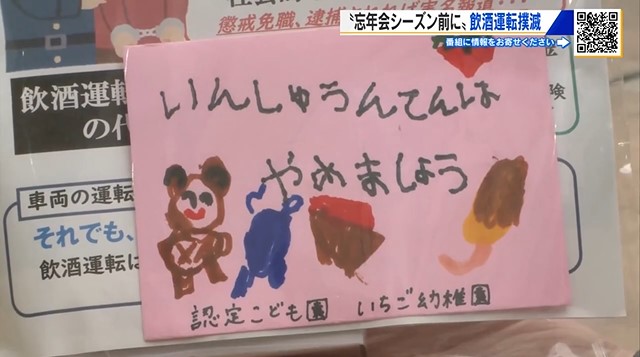 〝忘年会シーズン前に〟飲酒運転撲滅
番組に情報をお寄せください
懲戒免職、逮捕
飲酒運転
の代
車両の運転
それでも、
飲酒運転は
いんしゅうんてんは
やめましょう
認定こども園 いちご幼稚園
金
険